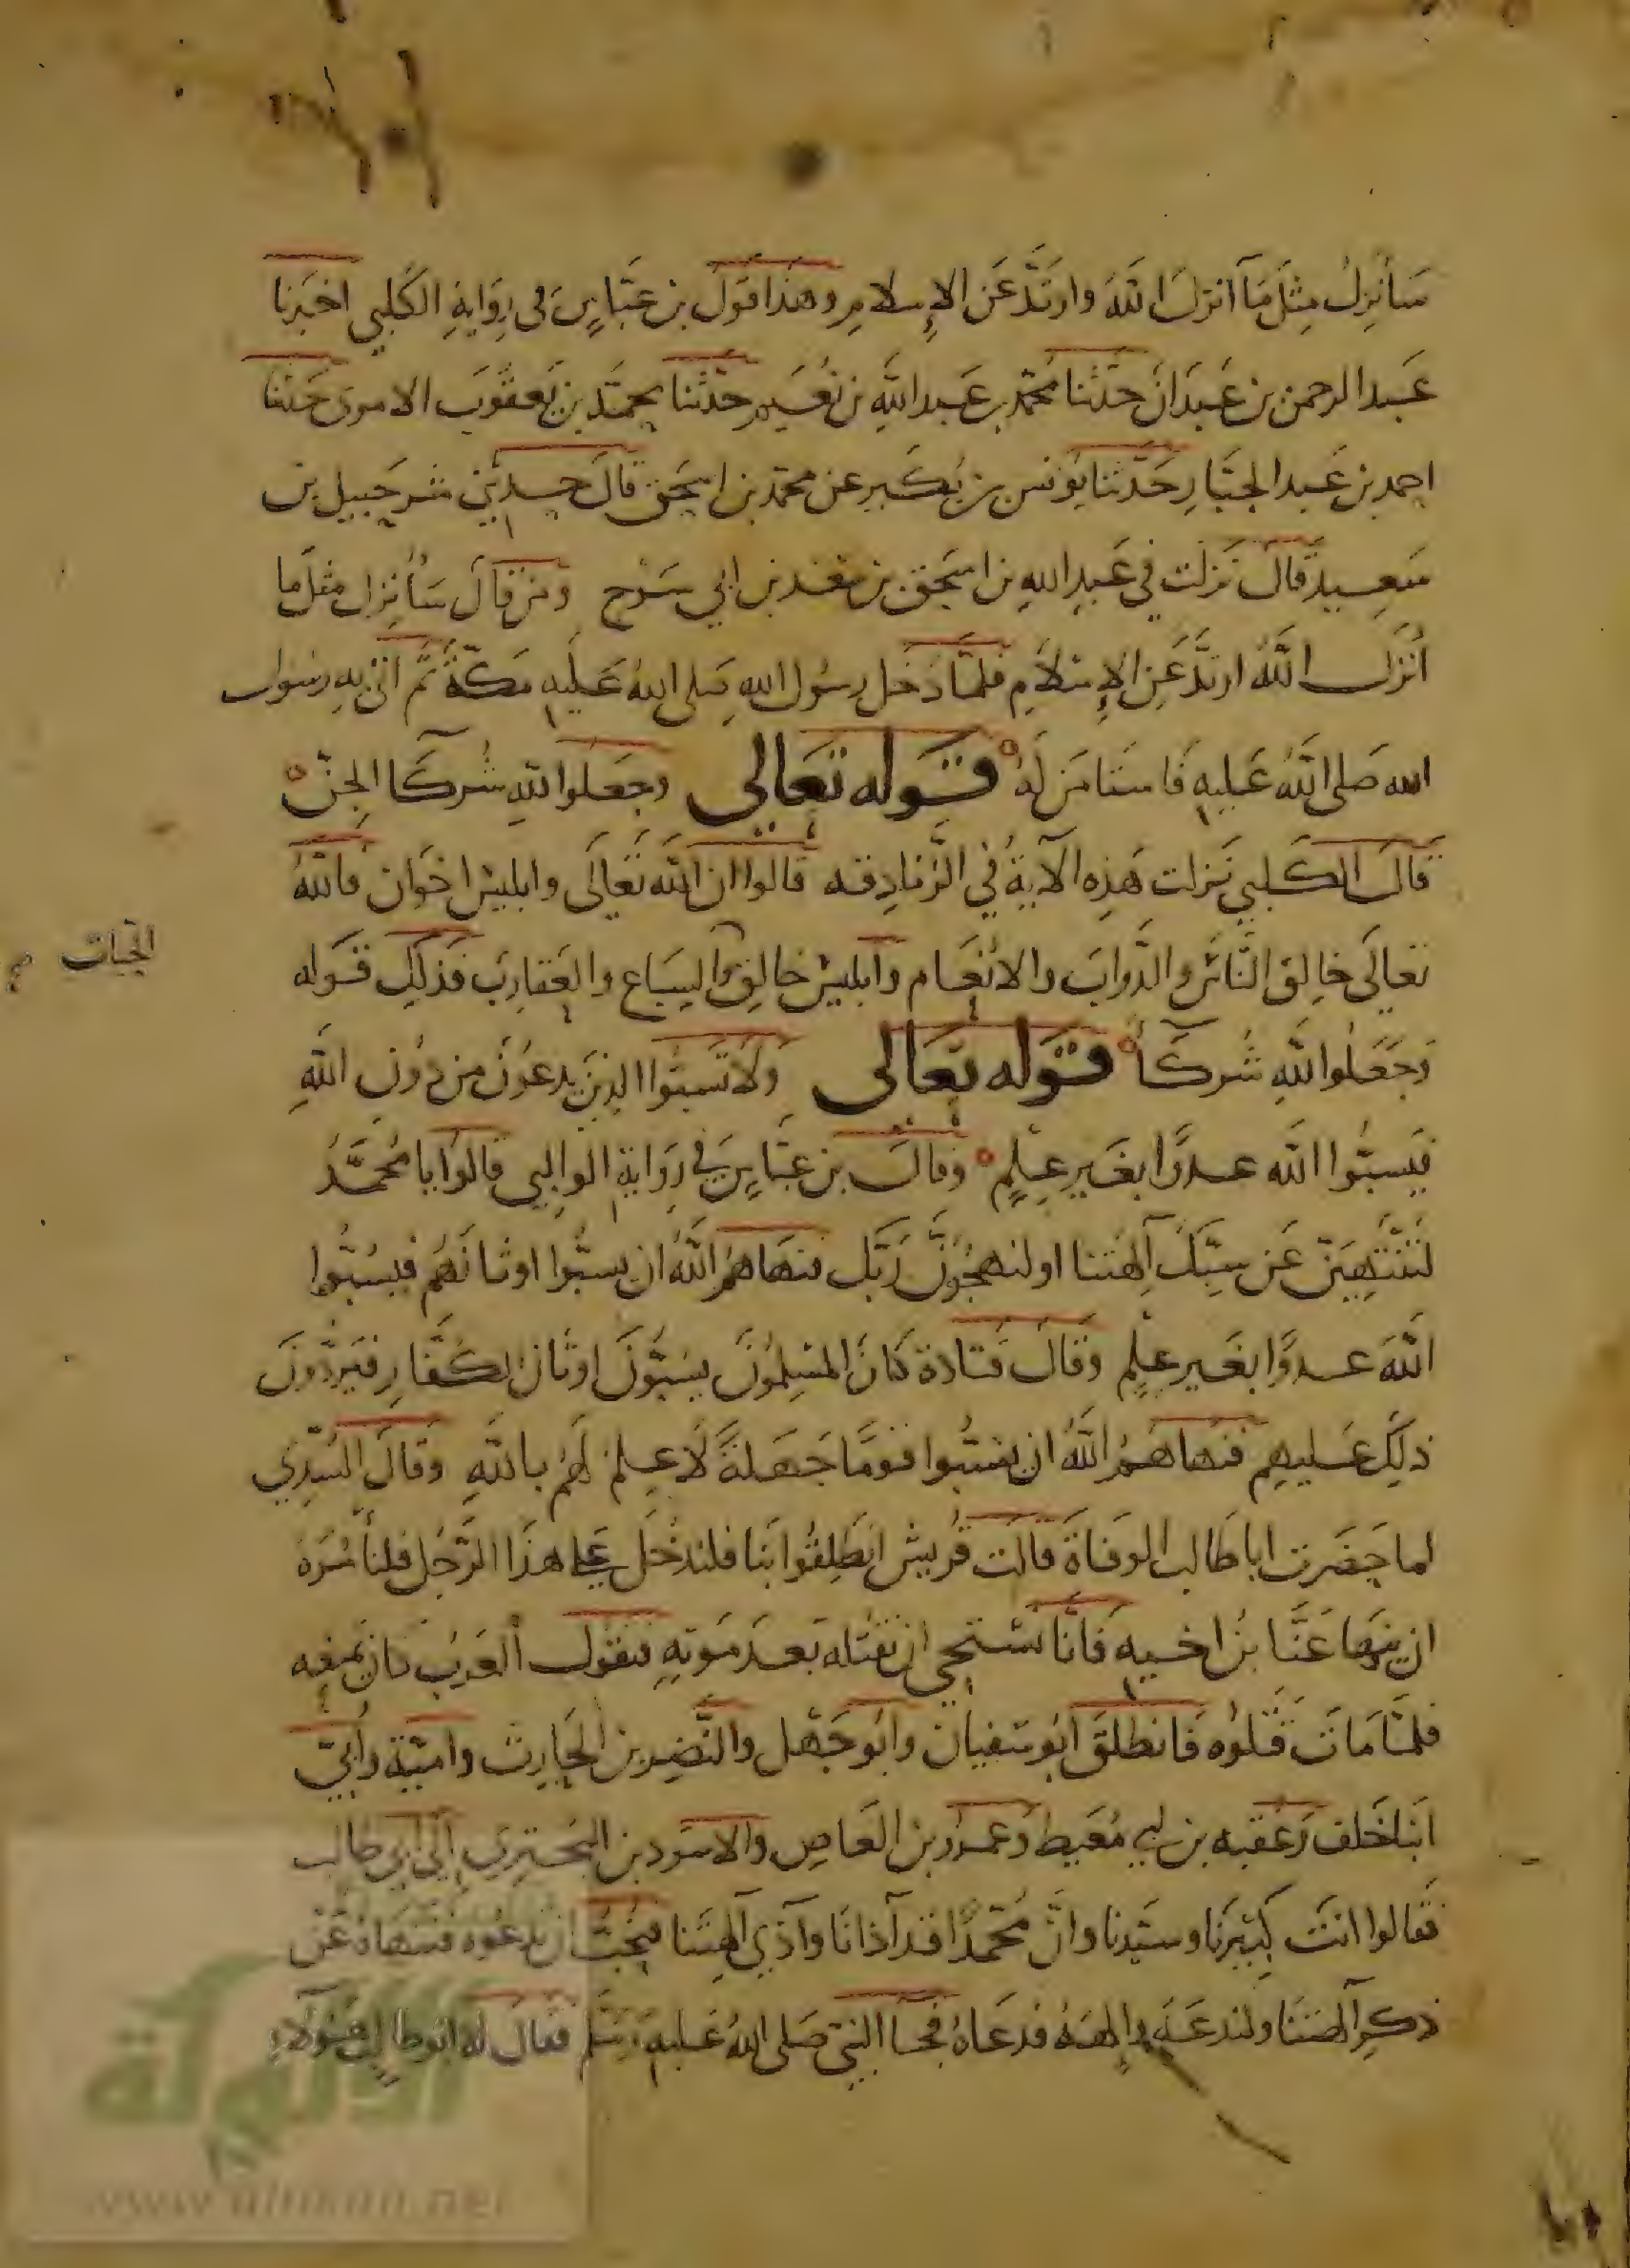 سَأنزِلُ مِثلَ مَآ انزَلَ اللّهُ وارتَدَّ عَن الإسلامِ وهذا قَولُ بن عبّاسٍ فى رِوَايةِ الكَلبي اخبَرنا
عَبد الرحمن بن عَبدَانَ حدّثنا محمّد بن عَبد اللّهِ بن نُعَيم حدّثنا محمّد بن يَعقُوبَ الاموى حَدثنا
احمد بن عَبد الجبّارِ حَدّثنا يُونس بن بُكَير عن محمّد بن اسحَق قالَ حدثني شرحبيل بن
سَعِيد قالَ نزلت في عَبدِ اللهِ بن اسحَق بن سَعد بن ابي سَرْح ومن قالَ سَأُنزِل مثلَ ما
أنزَل اللّهُ ارتدَّ عَنِ الإسلامِ فلمّا دَخَل رسُول اللهِ صَلى اللهُ عَليهِ مَكّةَ ثمَّ اتىَ بهِ رسُول
الله صَلى اللّهُ عَليهِ فَاستَامَن لَهُ قوله تعالى وجَعَلوا للّهِ شُركَآ الجِنّ
قَالَ الكَلبي نَزلت هَذِه الآيةُ في الزنادِقه قالوا ان اللّه تَعَالَى وابليسُ اخَوان فاللّهُ
تعالَى خالِق النّاسَ والدّوابَ والانعَام وابليسُ خالِق والسِبَاع والعَقارِبَ فذلِكَ قَوله
الحيات صح
وَجَعَلُوا للّهِ شُركَآ قوله تعالى وَلا تَسبُّوا الذينَ يدعُونَ من دُونِ اللّهِ
فيَسبُّوا اللّه عدوًا بغَيرِ عِلمٍ وقالَ بن عبّاسٍ في رِوَاية الوالبي قالوا يا مُحمَّدُ
لَتنْتَهِيَنّ عَن سَبِّكَ آلِهَتنا اولنهجُوَنّ رَبّك فنهَاهُم اللّهُ ان يسبُّوا اوثانَهُم فيسُبُّوا
اللّهَ عدوًا بغَير علمٍ وَقالَ قتادة كانَ المسلِمُونَ يسُبُّونَ اوثانَ الكُفّارِ فيَردُّونَ
ذلِكَ عَليهِم فنهاهُمُ اللّهُ ان يستسبّوا قومًا جَهَلةً لا عِلمَ لَهُم باللّهِ وقالَ السُّدّي
لما حَضَرت ابا طَالب الوفاةَ قالَت قُريشُ انطَلِقُوا بنا فلندخُل على هذَا الرّجُل فلنأمُره
ان ينهَا عَنّا بنَ اخيهِ فَانّا نَستحي ان نقتله بَعدَ مَوتهِ فتقولُ العَربُ كان يمنعه
فلمّا مَاتَ قَتلُوه فانطَلقَ ابُو سُفيان وابُو جَهل والنّضر بن الحَارِث واميّة وأبيّ
ابنا خَلف وعُقبه بن ابي مُعَيط وعمرو بن العَاصِ والاسوَد بن البُختري إلى ابي طالب
فقالوا انتَ كَبيرنا وسَيّدنا وانّ مُحَمّدًا قد آذانا وآذى آلهتَنا فنُحبُّ ان تدعُوه فتنهَاهُ عَن
ذكرِ آلهتنَا ولندعَه وإلهَهُ فدَعَاهُ فجا النبيّ صَلى اللهُ عَليهِ وَسَلّم فقالَ له ابو طالب هَؤلاءِ